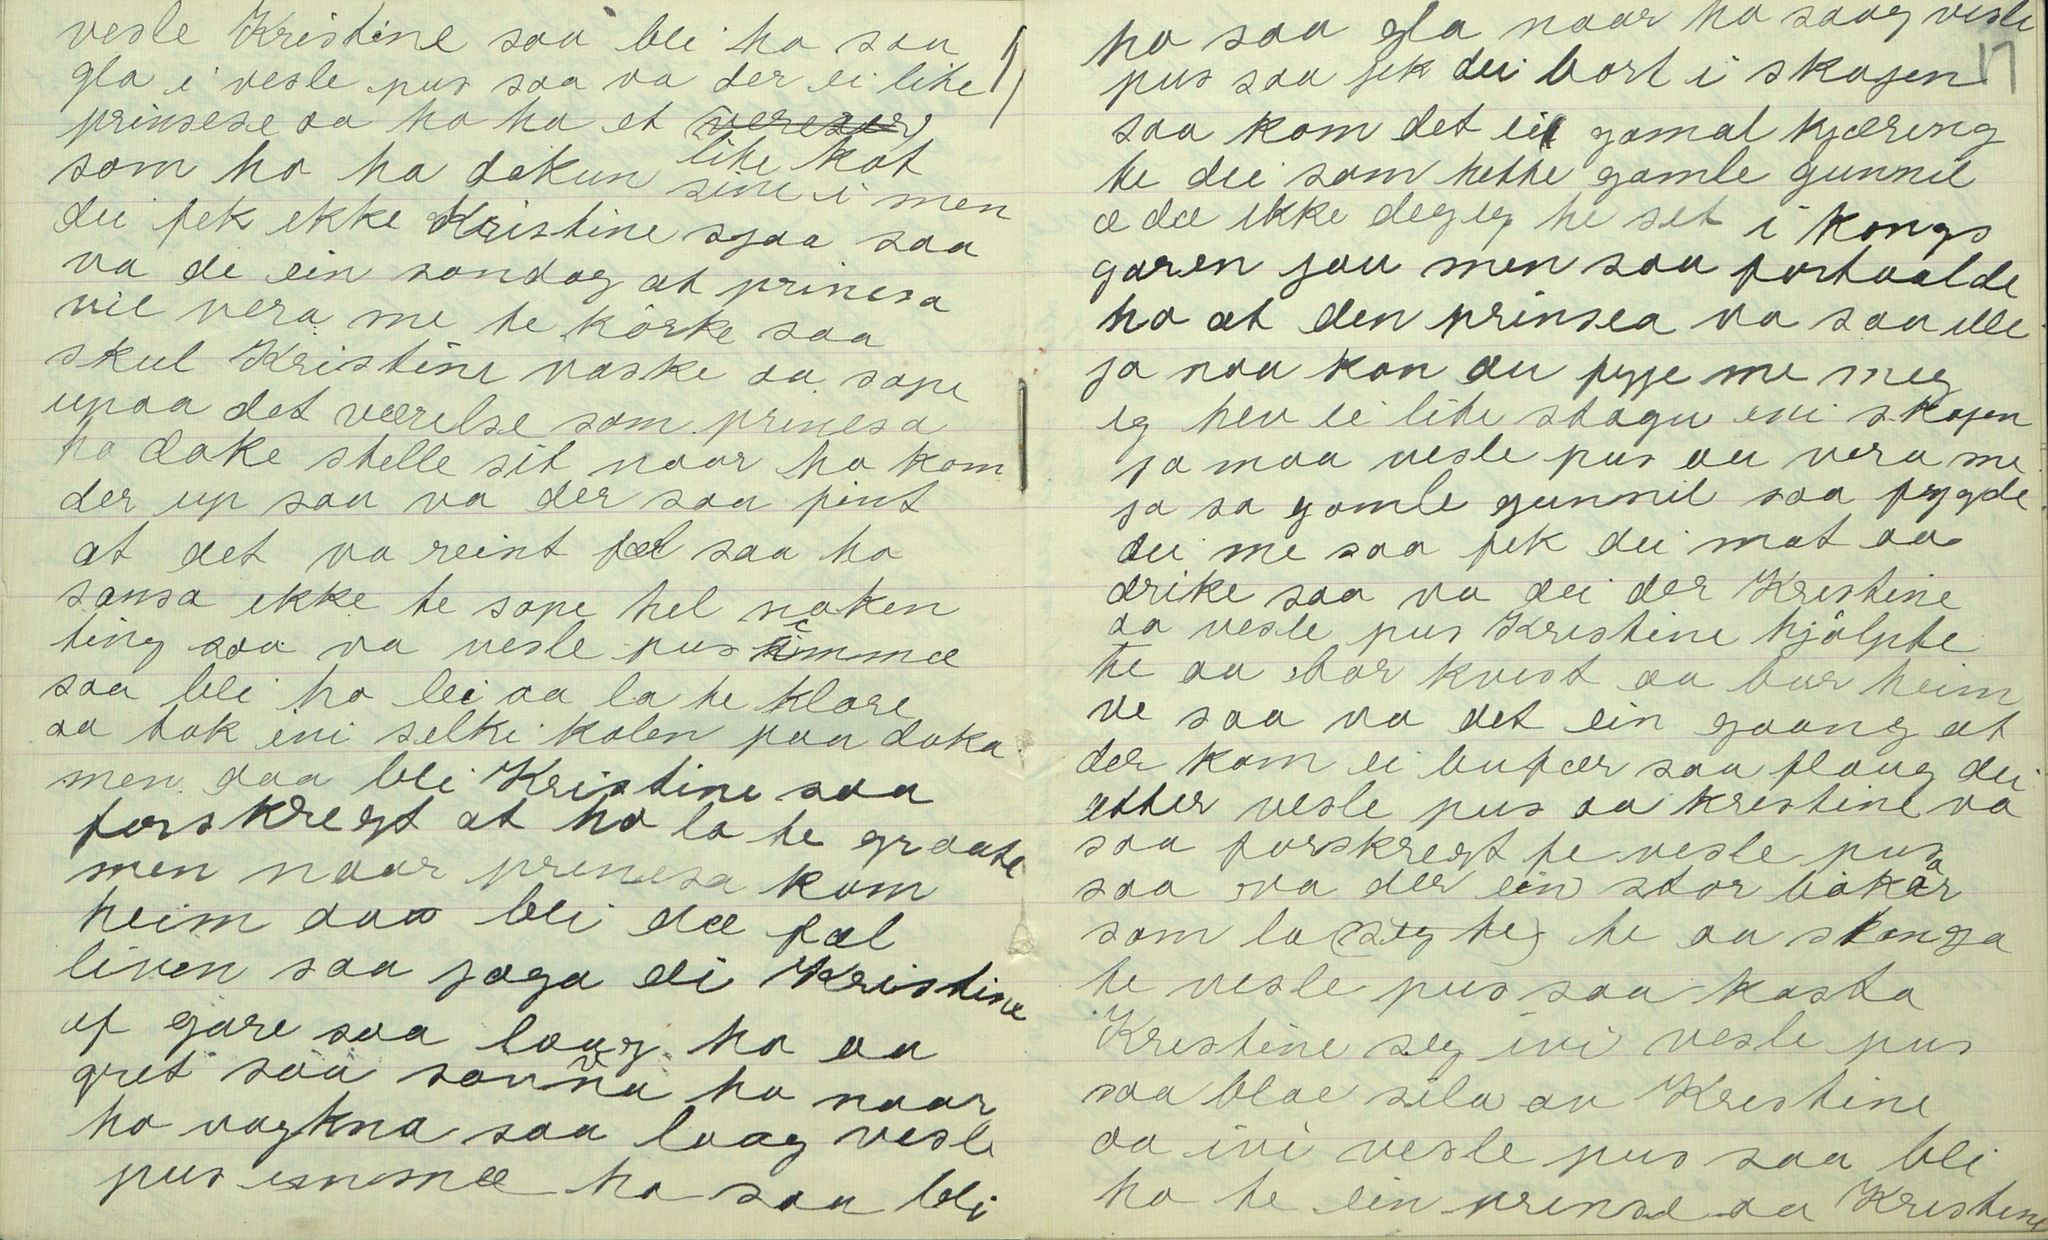 vesle Kristine saa blei ho saa
gla i vesle pus saa va der ei lite
prinsese aa ho ha et vereser
lite kot
som ho ha dokun sine i men
dei fek ikke Kristine sjaa saa
va de ein sondag at prinesa
vil vera me te körke saa
skul Kristine vaske aa sope
upaa det værelse som prinesa
ha doke stelle sit naar ho kom
der up saa va der saa fint
at det va reint fæl saa ho
sansa ikke te sope hel noken
ting saa va vesle pus immæ
saa blei ho lei aa la te klore
aa tok eni silki kolen paa doka
men daa blei Kristine saa
forskregt at ho la te graate
men naar prinesa kom
heim daa blei dæ fæl
liven saa jaga dei Kristine
af gare saa laag ho aa
gret saa sovna ho naar
ho vagkna saa laag vesle
pus immæ ho saa blei
17
ho saa gla naar ho saag vesle
pus saa fek dei bort i skogen
saa kom det ei gamal kjæring
te dei som hette gamle gunnil
æ dæ ikke deg eg he set i kongs
garen jau men saa fortaalde
ho at den prinsea va saa ille
ja naa kan du fygje me meg
eg hev ei lite stogu eni skogen
ja maa vesle pus au vera me
ja sa gamle gunnil saa fygde
dei me saa fek dei mat aa
drike saa va dei der Kristine
aa vesle pus Kristine hjölpte
te aa bar kvist aa bar heim
ve saa va det ein gaang at
der kom ei bufær saa flaug dei
etter vesle pus aa kristine va
saa forskregt fe vesle pus
saa va der ein stor bökar
som la seg te te aa stonga
te vesle pus saa kasta
Kristine seg ivi vesle pus
saa blæ sila av Kristine
aa ivi vesle pus saa blei
ho te ein prinse aa Kristine